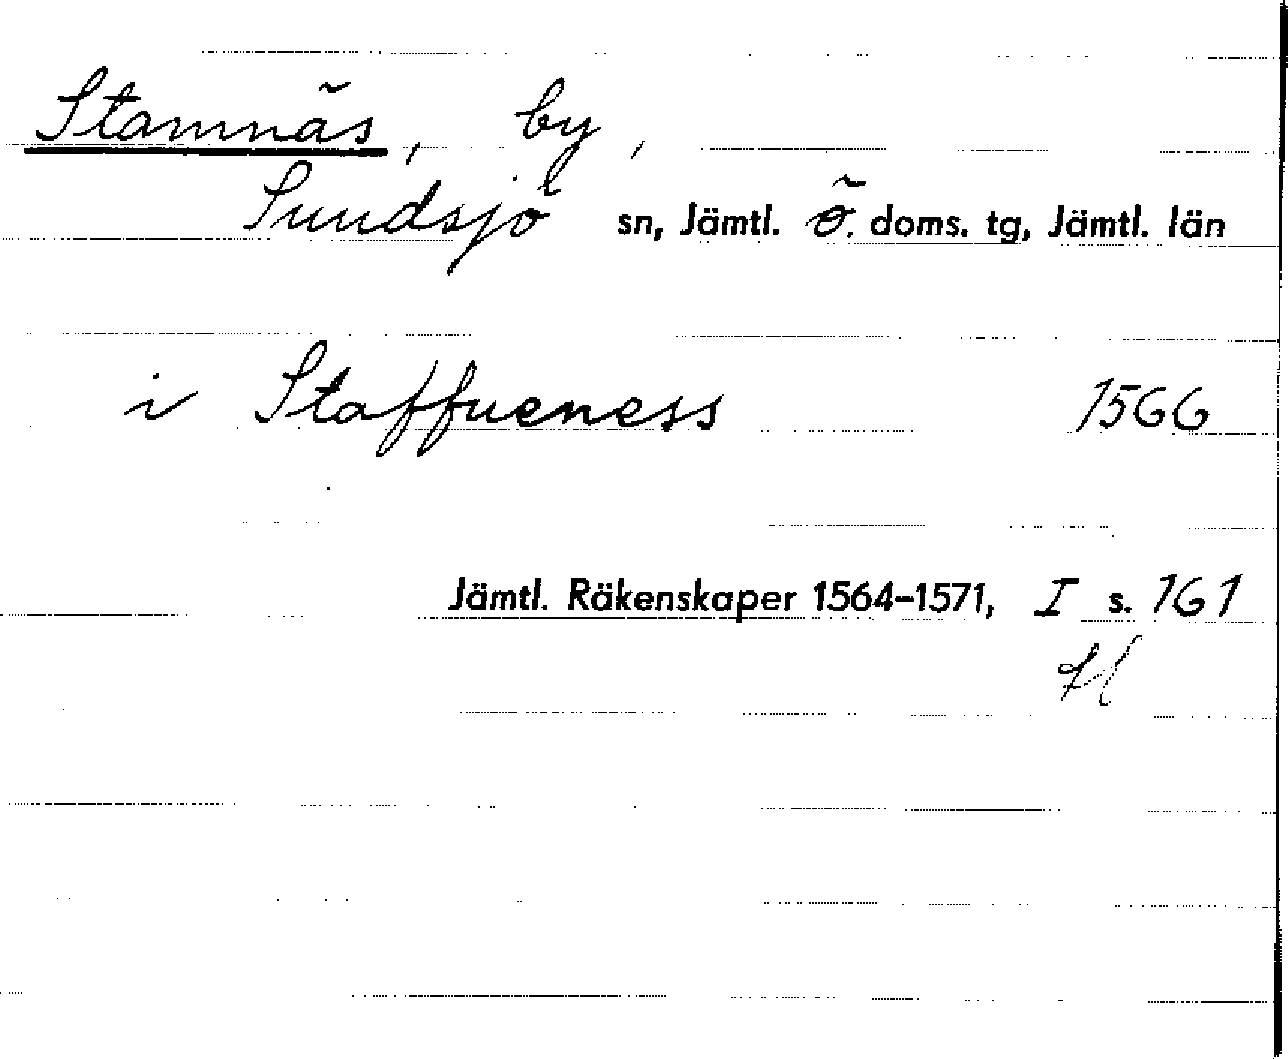 Stamnäs, by,
Sundsjö sn, Jämtl. ö. doms. tg, Jämtl. län
i Staffueness 1566
Jämtl. Räkenskaper 1564–1571, I s. 161